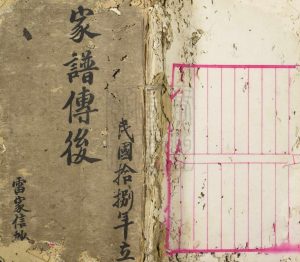 民國拾捌年立
家譜傳後
雷家信抄